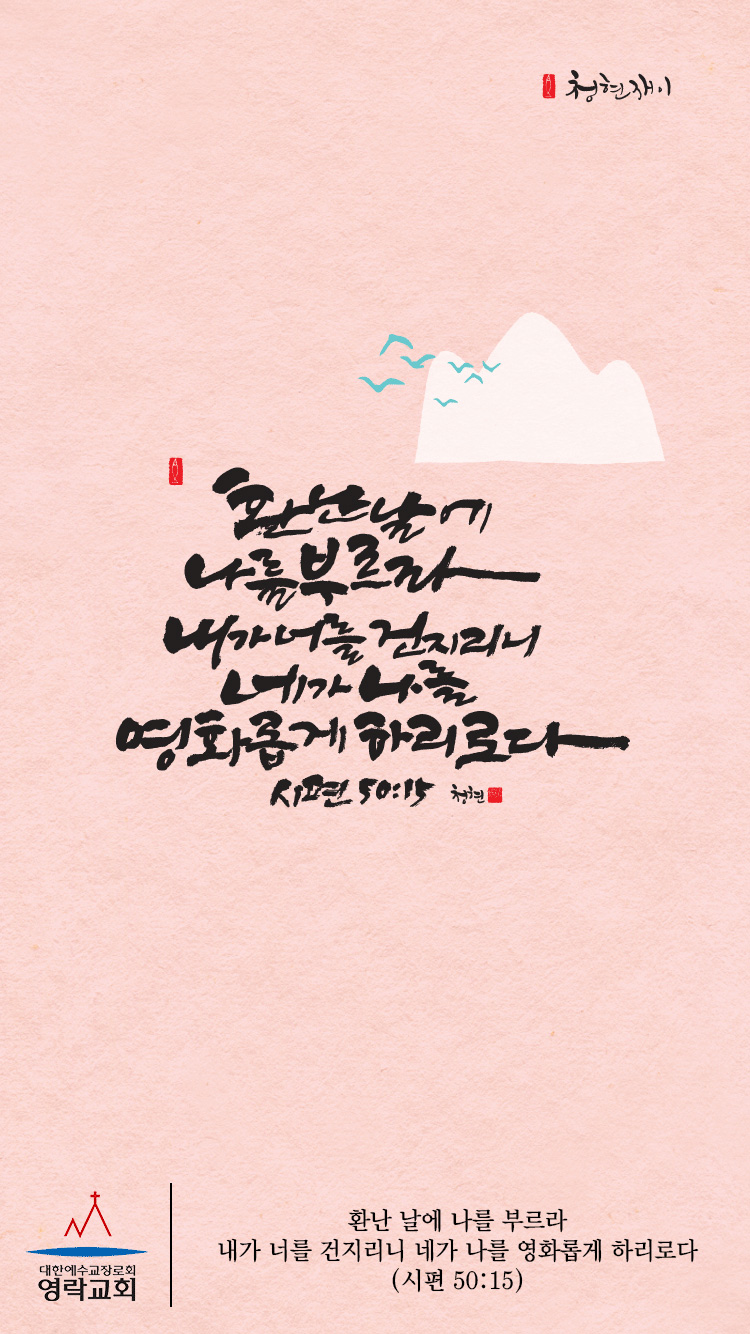 청현재이
환난날에
나를부르라
내가너를 건지리니
네가 나를
영화롭게 하리로다
시편 50:15 청현
대한예수교장로회
영락교회
환난 날에 나를 부르라
내가 너를 건지리니 네가 나를 영화롭게 하리로다
(시편 50:15)